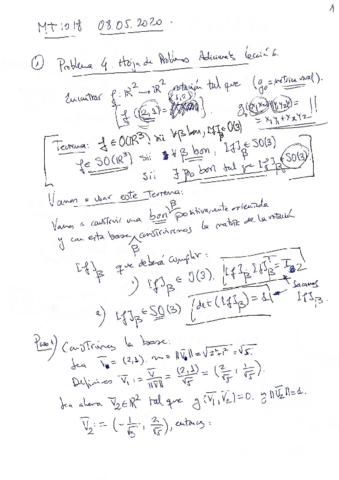 1
MT1018 08.05.2020.
① Problema 4. Hoja de Problemas Adicionales Lección 6.
Encontrar f: ℝ² → ℝ² rotación tal que
f(2,1) =
Teorema: f ∈ O(ℝ³) sii ∀ β bon, [f]β ∈ O(3)
f ∈ SO(ℝ³) sii ∀ β bon, [f]β ∈ SO(3)
sii ∃ β bon tal que [f]β ∈ SO(3)
Vamos a usar este Teorema:
Vamos a construir una bon β positivamente orientada
y con esta base β construiremos la matriz de la rotación
[f]β que deberá cumplir:
1) [f]β ∈ O(3). [f]β [f]βᵀ = I 2
2) [f]β ∈ SO(3) det([f]β) = 1 sacamos [f]β.
Paso 1) Construimos la base:
Sea v̄ = (2,1). = ||v̄|| = √2²+1² = √5.
Definimos v̄₁ := v̄/||v̄|| = (2,1)/√5 = (2/√5, 1/√5).
Sea ahora v̄₂ ∈ ℝ² tal que g(v̄₁, v̄₂) = 0. y ||v̄₂|| = 1.
v̄₂ := (-1/√5, 2/√5), entonces: